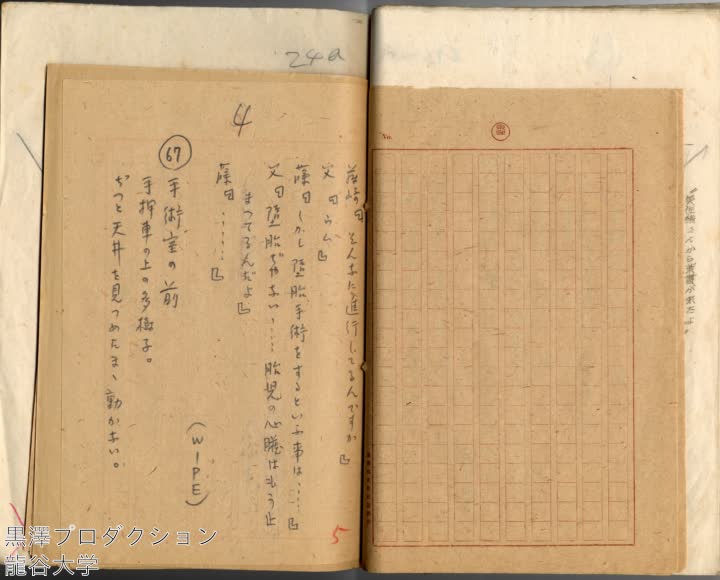 24a
4
藤崎曰 そんなに進行してるんですか』
父曰 うん』
藤曰 しかし 堕胎手術をするといふ事は……』
父曰 堕胎ぢゃない、……胎児の心臓はもう止
まつてるんだよ』
藤曰 ……』
(WIPE)
67 手術室の前
手押車の上の多樹子。
ぢつと天井を見つめたまゝ動かない。
5
No.
黒澤プロダクション
龍谷大学